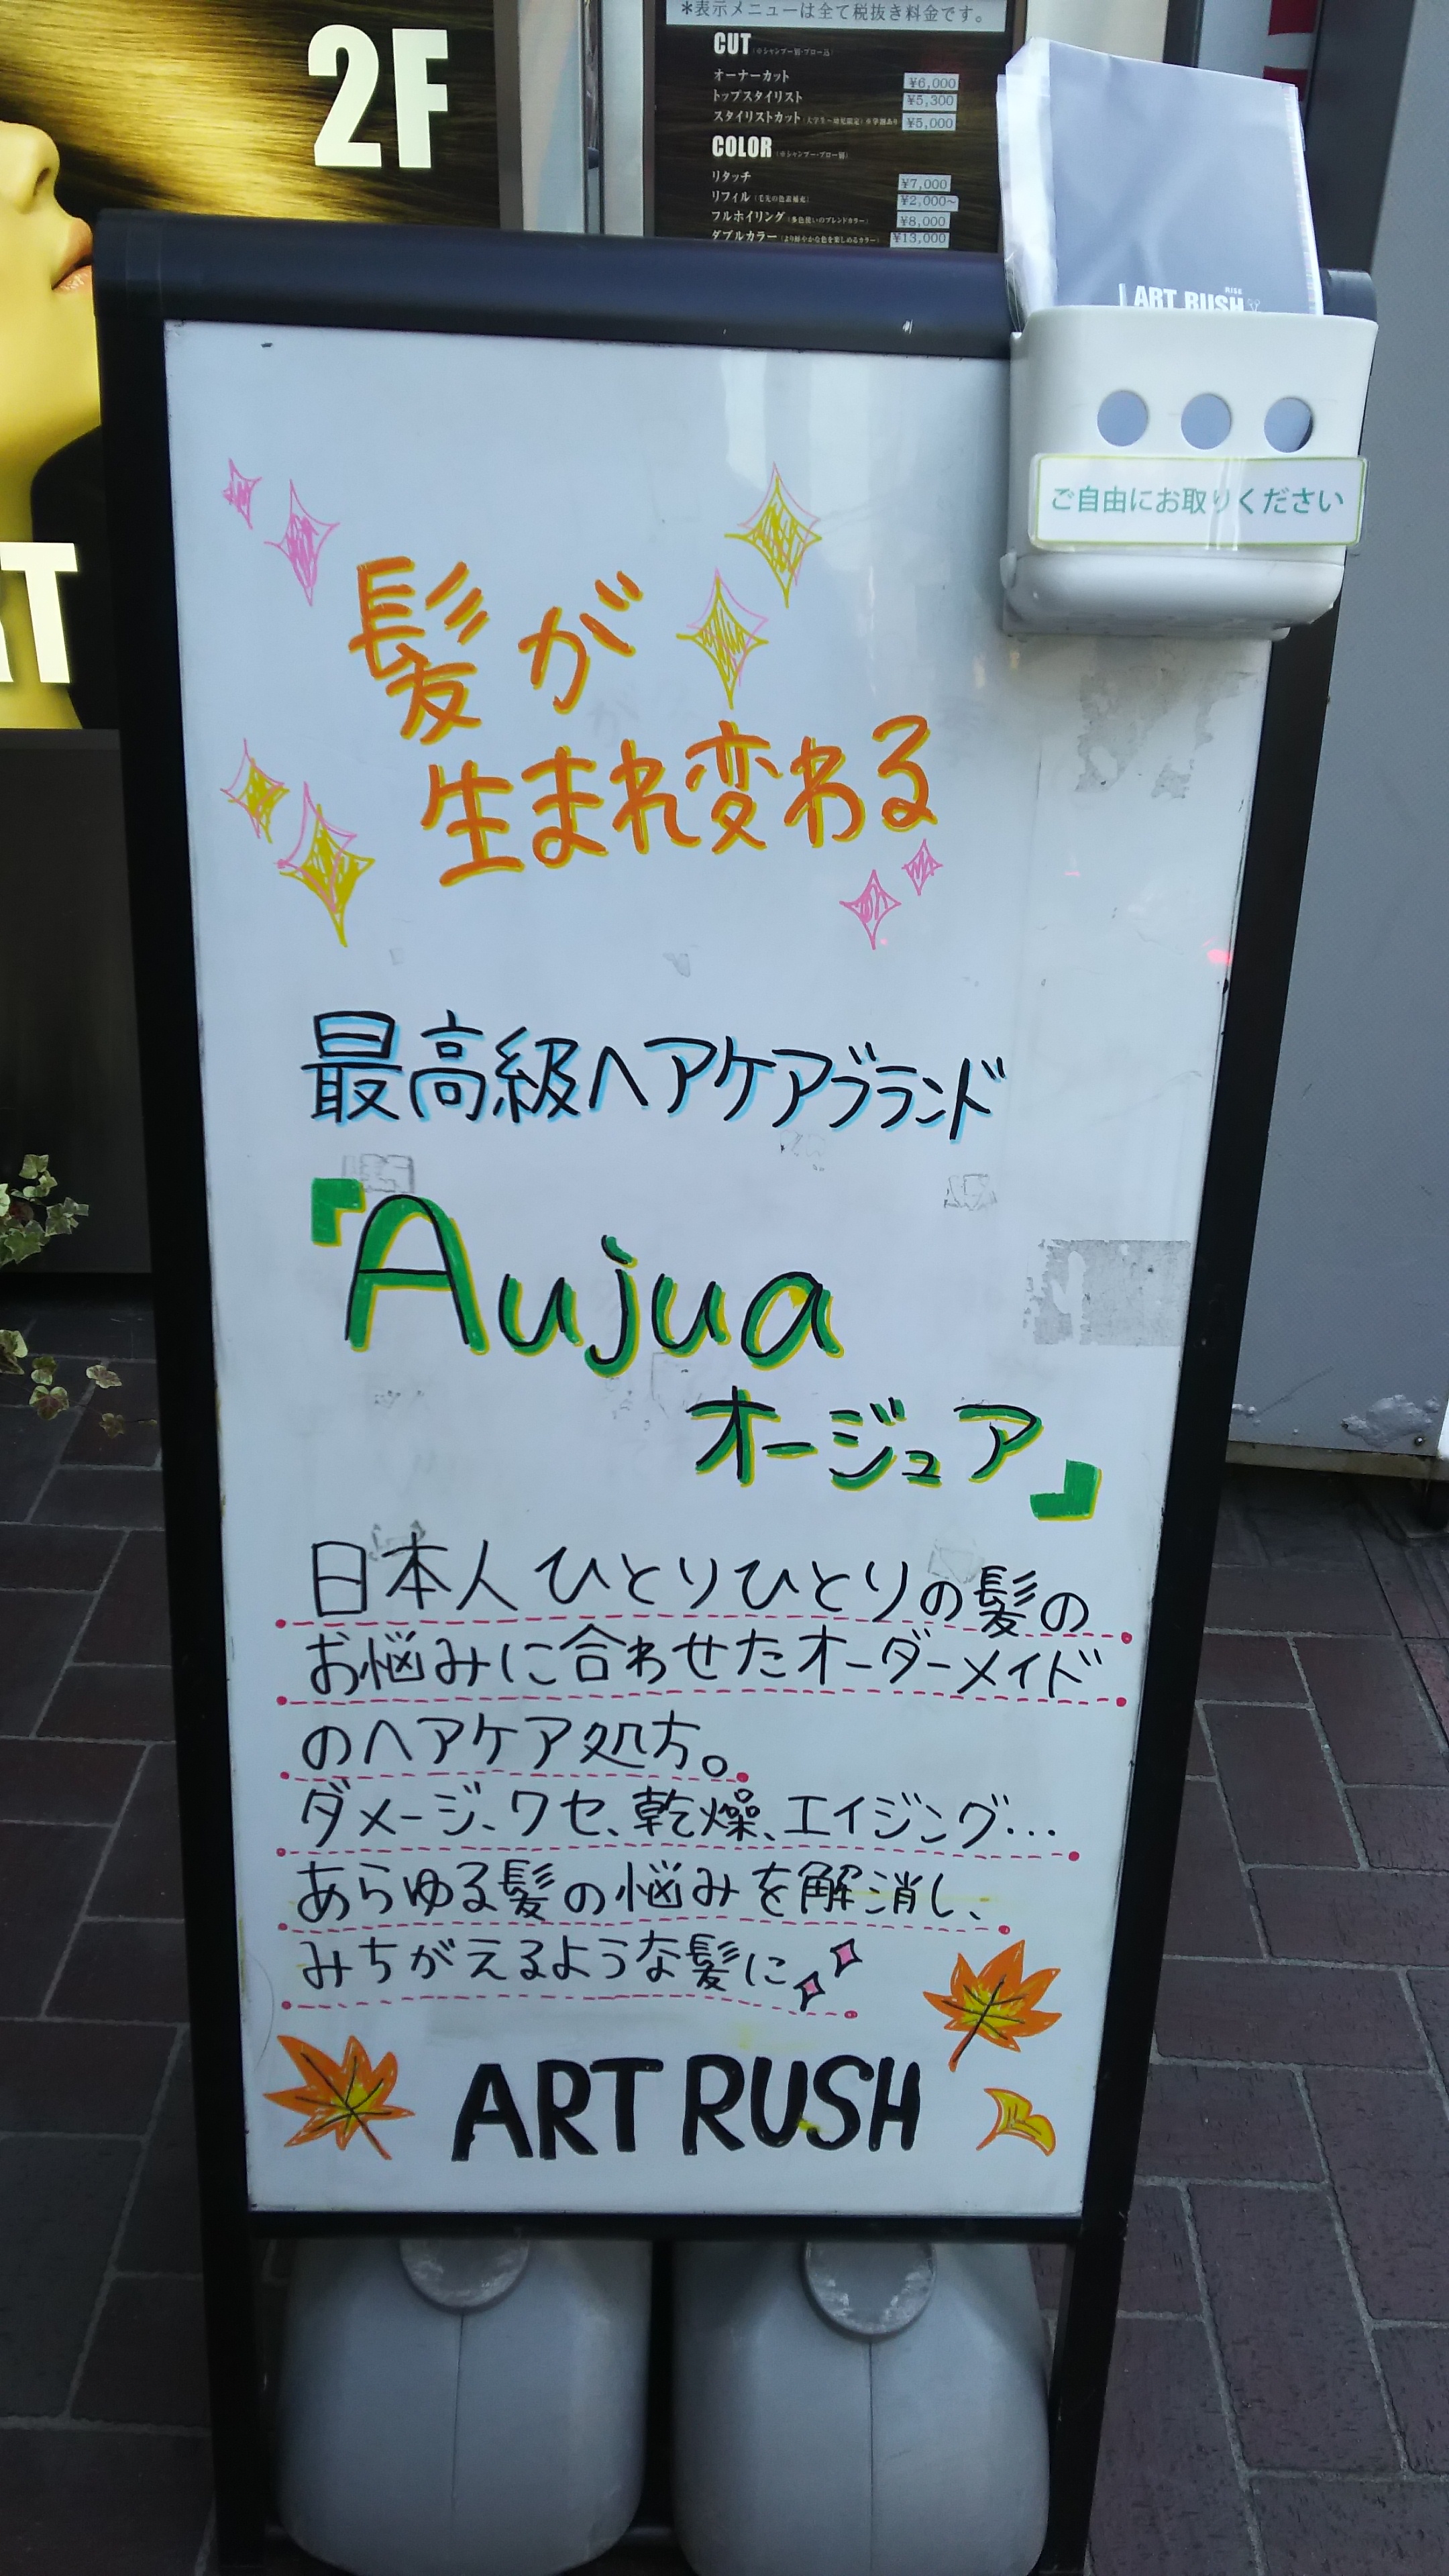 2F
*表示メニューは全て税抜き料金です。
CUT (※シャンプー別・ブロー込)
オーナーカット ¥6,000
トップスタイリスト ¥5,300
スタイリストカット ¥5,000
COLOR (※シャンプー・ブロー別)
リタッチ ¥7,000
リフィル (毛先の色素補充) ¥2,000~
フルホイリング (多色使いのブレンドカラー) ¥8,000
ダブルカラー (より鮮やかな色を楽しめるカラー) ¥13,000
RISE
ART RUSH
ご自由にお取りください
髪が
生まれ変わる
最高級ヘアケアブランド
『Aujua
オージュア』
日本人ひとりひとりの髪の
お悩みに合わせたオーダーメイド
のヘアケア処方。
ダメージ、クセ、乾燥、エイジング…
あらゆる髪の悩みを解消し、
みちがえるような髪に
ART RUSH